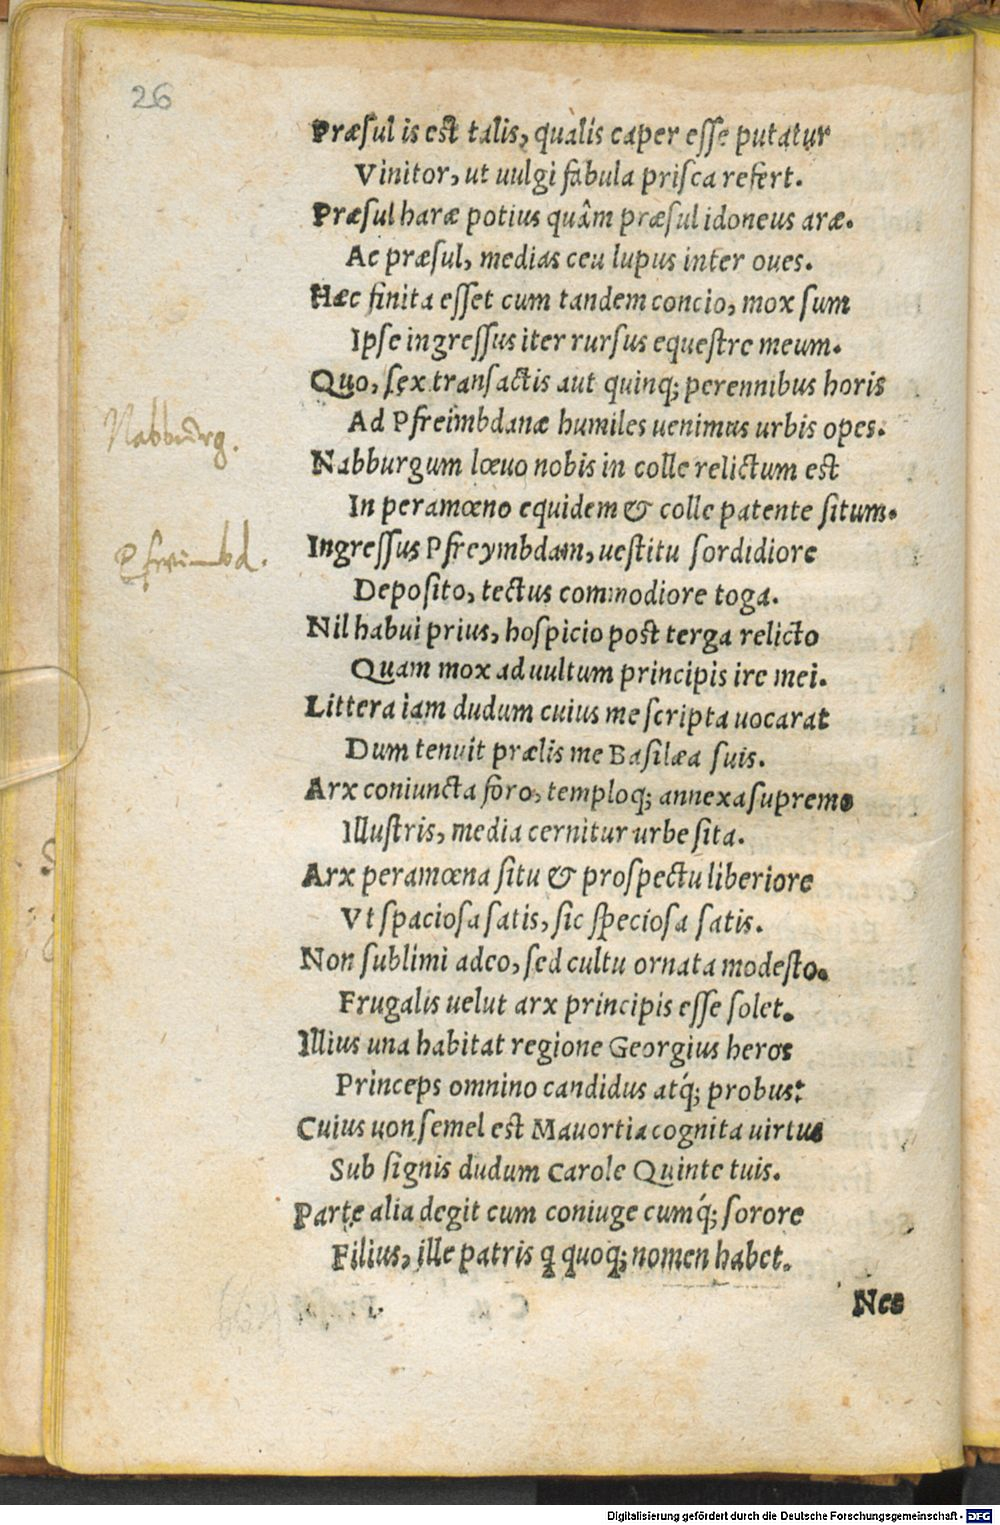 26
Præſul is eſt talis, qualis caper eſſe putatur
Vinitor, ut uulgi fabula priſca refert.
Præſul haræ potius quâm præſul idoneus aræ.
Ac præſul, medias ceu lupus inter oues.
Hæc finita eſſet cum tandem concio, mox ſum
Ipſe ingreſſus iter rurſus equeſtre meum.
Quo, ſex tranſactis aut quinq; perennibus horis
Ad Pfreimbdanæ humiles uenimus urbis opes.
Nabburg.
Nabburgum lœuo nobis in colle relictum est
In peramœno equidem & colle patente ſitum.
Pfreimbd.
Ingreſſus Pfreymbdam, ueſtitu ſordidiore
Depoſito, tectus commodiore toga.
Nil habui prius, hoſpicio poſt terga relicto
Quam mox ad uultum principis ire mei.
Littera iam dudum cuius me ſcripta uocarat
Dum tenuit prælis me Baſilæa ſuis.
Arx coniuncta foro, temploq; annexa ſupremo
Illuſtris, media cernitur urbe ſita.
Arx peramœna ſitu & proſpectu liberiore
Vt ſpacioſa ſatis, ſic ſpecioſa ſatis.
Non ſublimi adeo, ſed cultu ornata modeſto.
Frugalis uelut arx principis eſſe ſolet.
Illius una habitat regione Georgius heros
Princeps omnino candidus atq́; probus:
Cuius uon ſemel eſt Mauortia cognita uirtus
Sub ſignis dudum Carole Quinte tuis.
Parte alia degit cum coniuge cumq́; ſorore
Filius, ille patris q quoq; nomen habet.
Nes
Digitalisierung gefördert durch die Deutsche Forschungsgemeinschaft - DFG